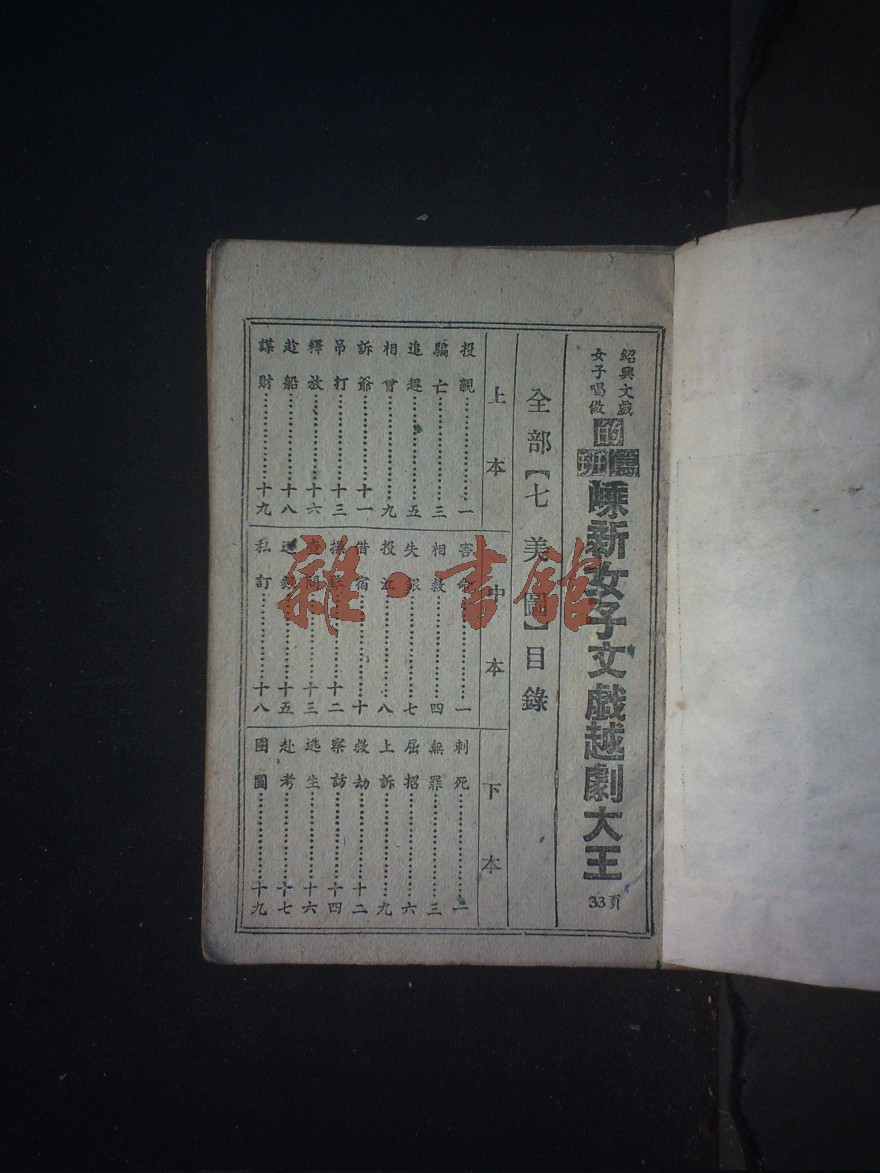 紹興文戲
女子唱做
的篤班
嵊新女子文戲越劇大王
33頁
全部【七美圖】目錄
上本
投親…………一
騙亡…………三
追趕…………五
相會…………九
訴爺…………十一
吊打…………十三
釋放…………十六
趁船…………十八
謀財…………十九
中本
害命…………一
相救…………四
失銀…………七
投江…………八
借宿…………十
…………十二
…………十三
送銀…………十五
私訂…………十八
下本
刺死…………一
無罪…………三
屈招…………六
上訴…………九
救劫…………十二
察訪…………十四
逃生…………十六
赴考…………十七
團圓…………十九
雜·書館